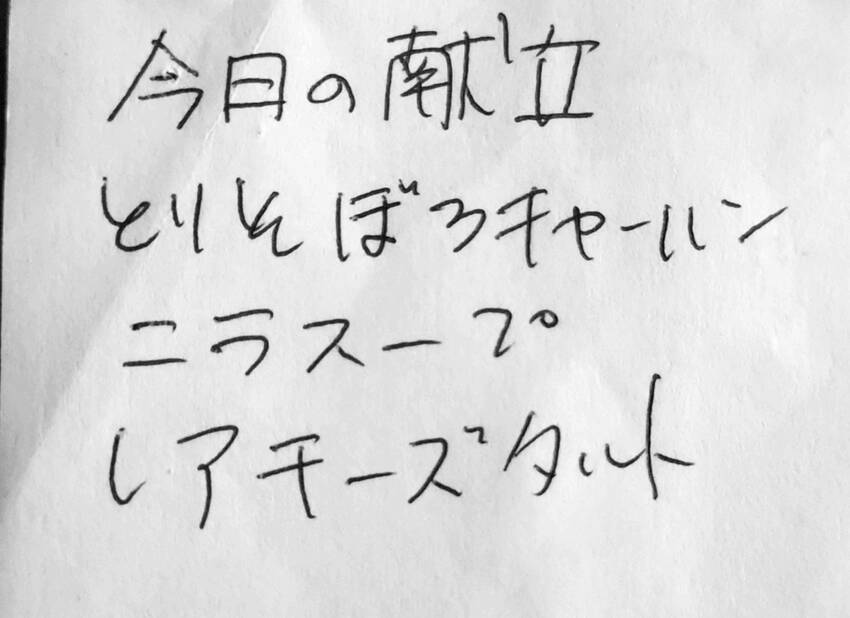 今日の献立
とりそぼろチャーハン
ニラスープ
レアチーズタルト